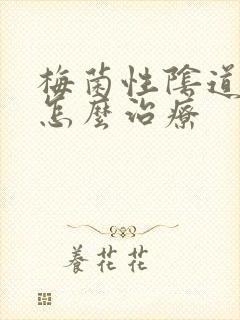 梅菌性陰道
怎麼治療
養花花